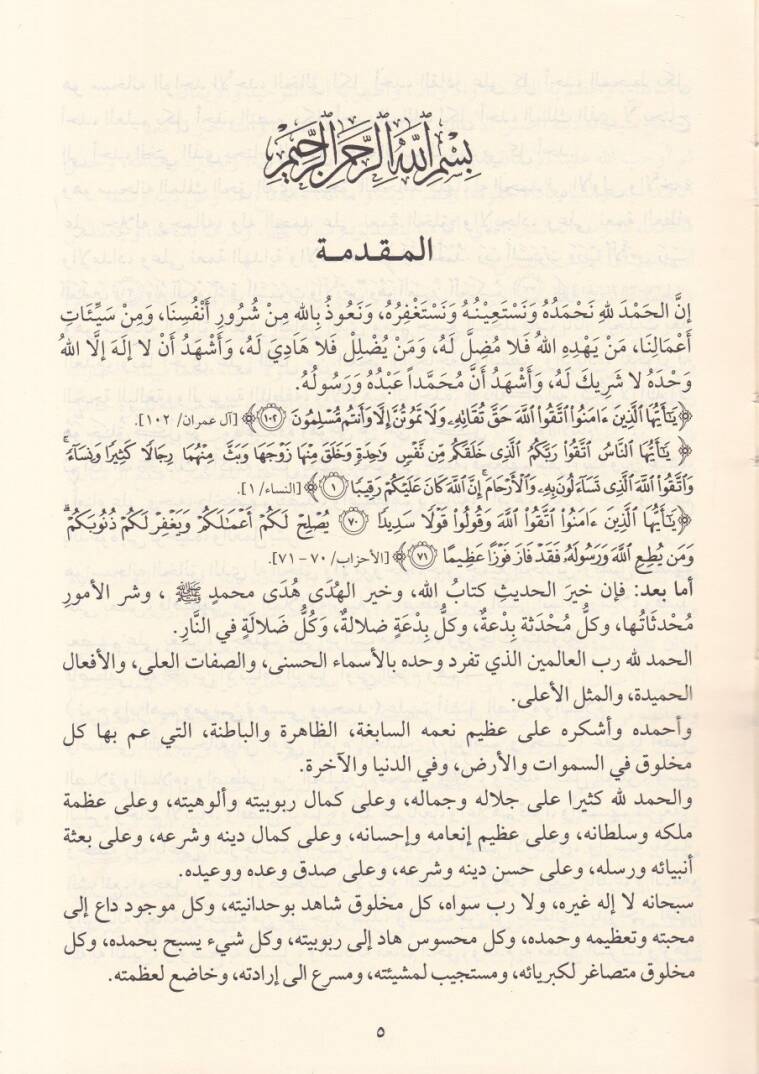 بِسْمِ ٱللَّهِ ٱلرَّحْمَٰنِ ٱلرَّحِيمِ
المـقـدمـة
إِنَّ الحَمْدَ للهِ نَحْمَدُهُ وَنَسْتَعِيْنُهُ وَنَسْتَغْفِرُهُ، وَنَعُوذُ بِالله مِنْ شُرُورِ أَنْفُسِنَا، وَمِنْ سَيِّئَاتِ
أَعْمَالِنَا، مَنْ يَهْدِهِ اللهُ فَلا مُضِلَّ لَهُ، وَمَنْ يُضْلِلْ فَلا هَادِيَ لَهُ، وَأَشْهَدُ أَنْ لا إلَهَ إلَّا اللهُ
وَحْدَهُ لا شَرِيكَ لَهُ، وَأَشْهَدُ أَنَّ مُحَمَّداً عَبْدُهُ وَرَسُولُهُ.
﴿يَٰٓأَيُّهَا ٱلَّذِينَ ءَامَنُوا۟ ٱتَّقُوا۟ ٱللَّهَ حَقَّ تُقَاتِهِۦ وَلَا تَمُوتُنَّ إِلَّا وَأَنتُم مُّسْلِمُونَ ١٠٢﴾ [آل عمران/ ١٠٢].
﴿يَٰٓأَيُّهَا ٱلنَّاسُ ٱتَّقُوا۟ رَبَّكُمُ ٱلَّذِى خَلَقَكُم مِّن نَّفْسٍ وَٰحِدَةٍ وَخَلَقَ مِنْهَا زَوْجَهَا وَبَثَّ مِنْهُمَا رِجَالًا كَثِيرًا وَنِسَآءً ۚ
وَٱتَّقُوا۟ ٱللَّهَ ٱلَّذِى تَسَآءَلُونَ بِهِۦ وَٱلْأَرْحَامَ ۚ إِنَّ ٱللَّهَ كَانَ عَلَيْكُمْ رَقِيبًا ١﴾ [النساء/ ١].
﴿يَٰٓأَيُّهَا ٱلَّذِينَ ءَامَنُوا۟ ٱتَّقُوا۟ ٱللَّهَ وَقُولُوا۟ قَوْلًا سَدِيدًا ٧٠ يُصْلِحْ لَكُمْ أَعْمَٰلَكُمْ وَيَغْفِرْ لَكُمْ ذُنُوبَكُمْ ۗ
وَمَن يُطِعِ ٱللَّهَ وَرَسُولَهُۥ فَقَدْ فَازَ فَوْزًا عَظِيمًا ٧١﴾ [الأحزاب/ ٧٠ - ٧١].
أما بعد: فإن خيرَ الحديثِ كتابُ الله، وخير الهُدَى هُدَى محمدٍ ﷺ ، وشر الأمورِ
مُحْدثَاتُها، وكلُّ مُحْدَثة بِدْعةٌ، وكلُّ بِدْعَةٍ ضلالةٌ، وَكُلُّ ضَلالَةٍ في النَّارِ.
الحمد لله رب العالمين الذي تفرد وحده بالأسماء الحسنى، والصفات العلى، والأفعال
الحميدة، والمثل الأعلى.
وأحمده وأشكره على عظيم نعمه السابغة، الظاهرة والباطنة، التي عم بها كل
مخلوق في السموات والأرض، وفي الدنيا والآخرة.
والحمد لله كثيرا على جلاله وجماله، وعلى كمال ربوبيته وألوهيته، وعلى عظمة
ملكه وسلطانه، وعلى عظيم إنعامه وإحسانه، وعلى كمال دينه وشرعه، وعلى بعثة
أنبيائه ورسله، وعلى حسن دينه وشرعه، وعلى صدق وعده ووعيده.
سبحانه لا إله غيره، ولا رب سواه، كل مخلوق شاهد بوحدانيته، وكل موجود داع إلى
محبته وتعظيمه وحمده، وكل محسوس هاد إلى ربوبيته، وكل شيء يسبح بحمده، وكل
مخلوق متصاغر لكبريائه، ومستجيب لمشيئته، ومسرع الى إرادته، وخاضع لعظمته.
٥